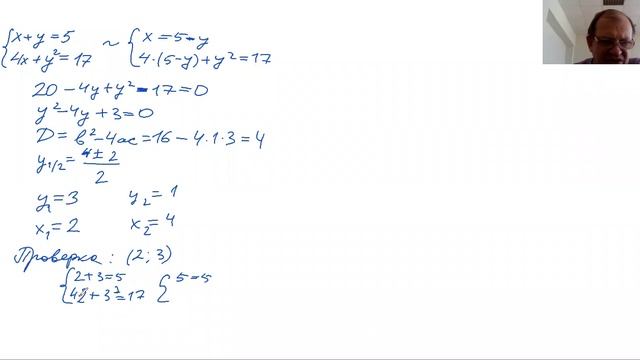 {x+y=5 ~ {x=5-y
{4x+y²=17 {4·(5-y)+y²=17
20-4y+y²-17=0
y²-4y+3=0
D=b²-4ac=16-4·1·3=4
y₁/₂=(4±2)/2
y₁=3 y₂=1
x₁=2 x₂=4
Проверка: (2;3)
{2+3=5 {5=5
{4·2+3²=17